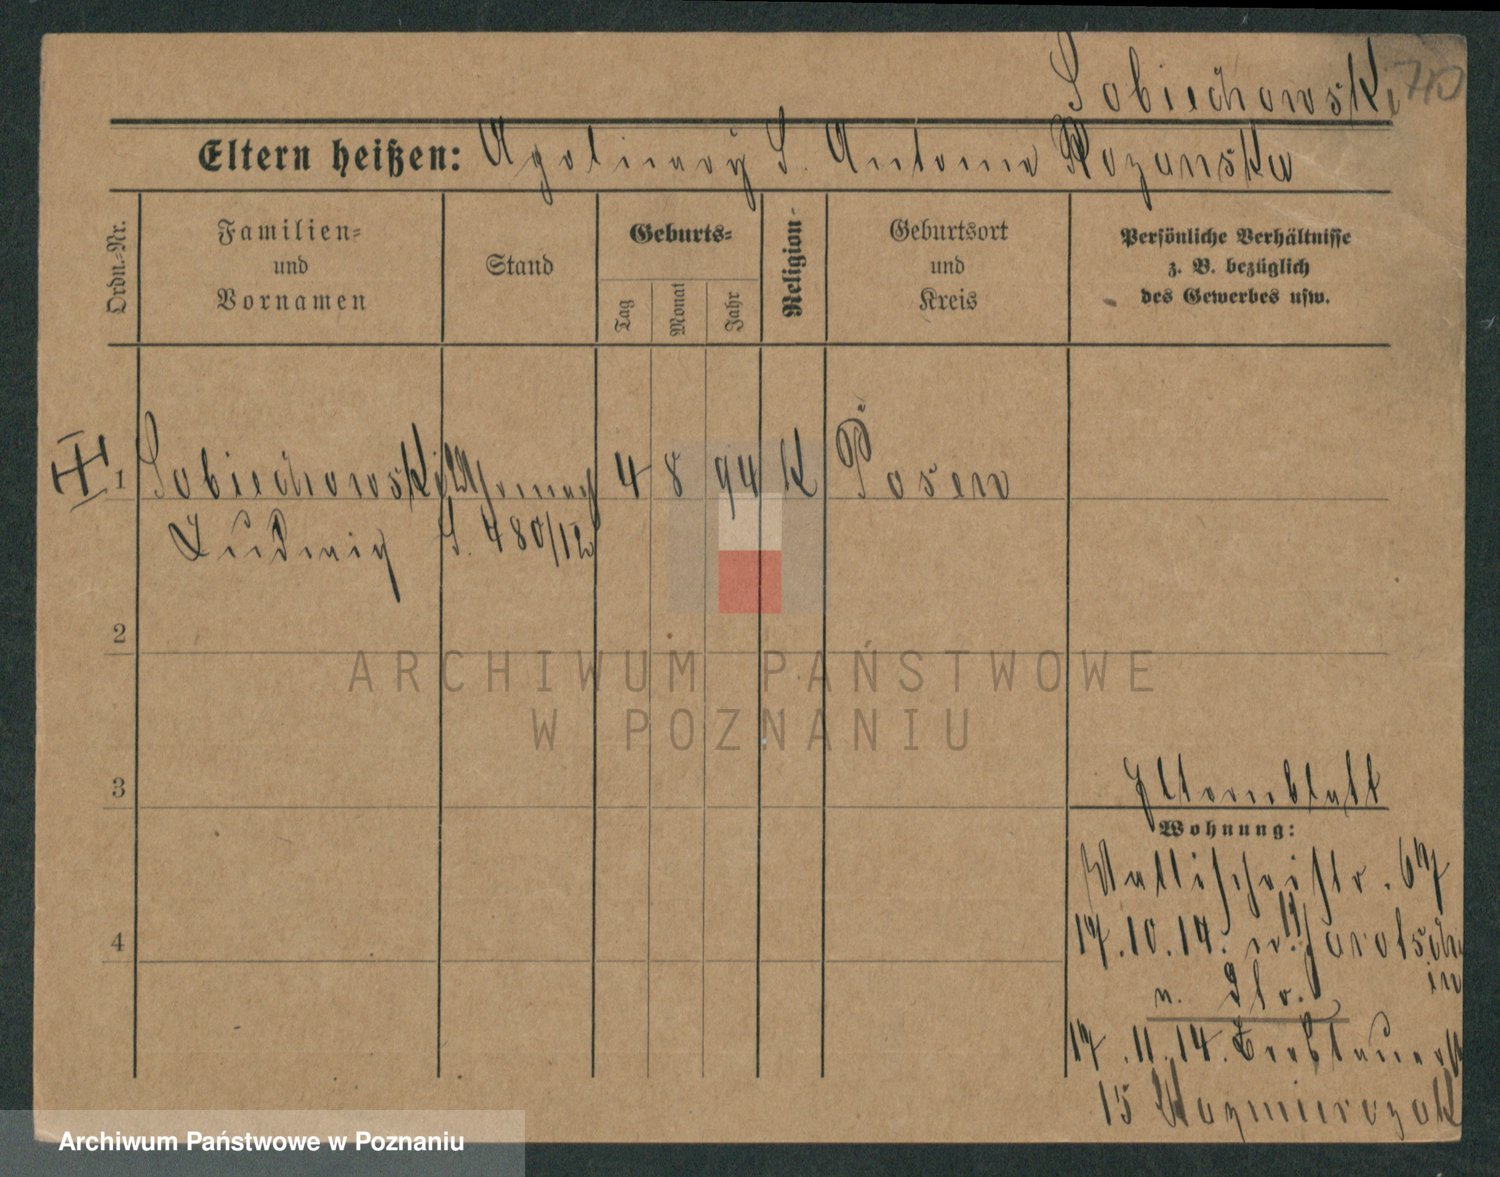 Sobiechowski
710
Eltern heißen: Apolinary S. Antonie Rozanska
Ordn.-Nr.
Familien-
und
Vornamen
Stand
Geburts-
Tag
Monat
Jahr
Religion-
Geburtsort
und
Kreis
Persönliche Verhältnisse
z. B. bezüglich
des Gewerbes usw.
1 Sobiechowski 4 8 94 K Posen
Ludwig S. 480/12
2
ARCHIWUM PAŃSTWOWE
W POZNANIU
3
Elternblatt
Wohnung:
Wallischeistr. 67
4
17.10.14. n. Jarotsch
in
n. Str.
17.11.14.
15 Kazmierczak
Archiwum Państwowe w Poznaniu